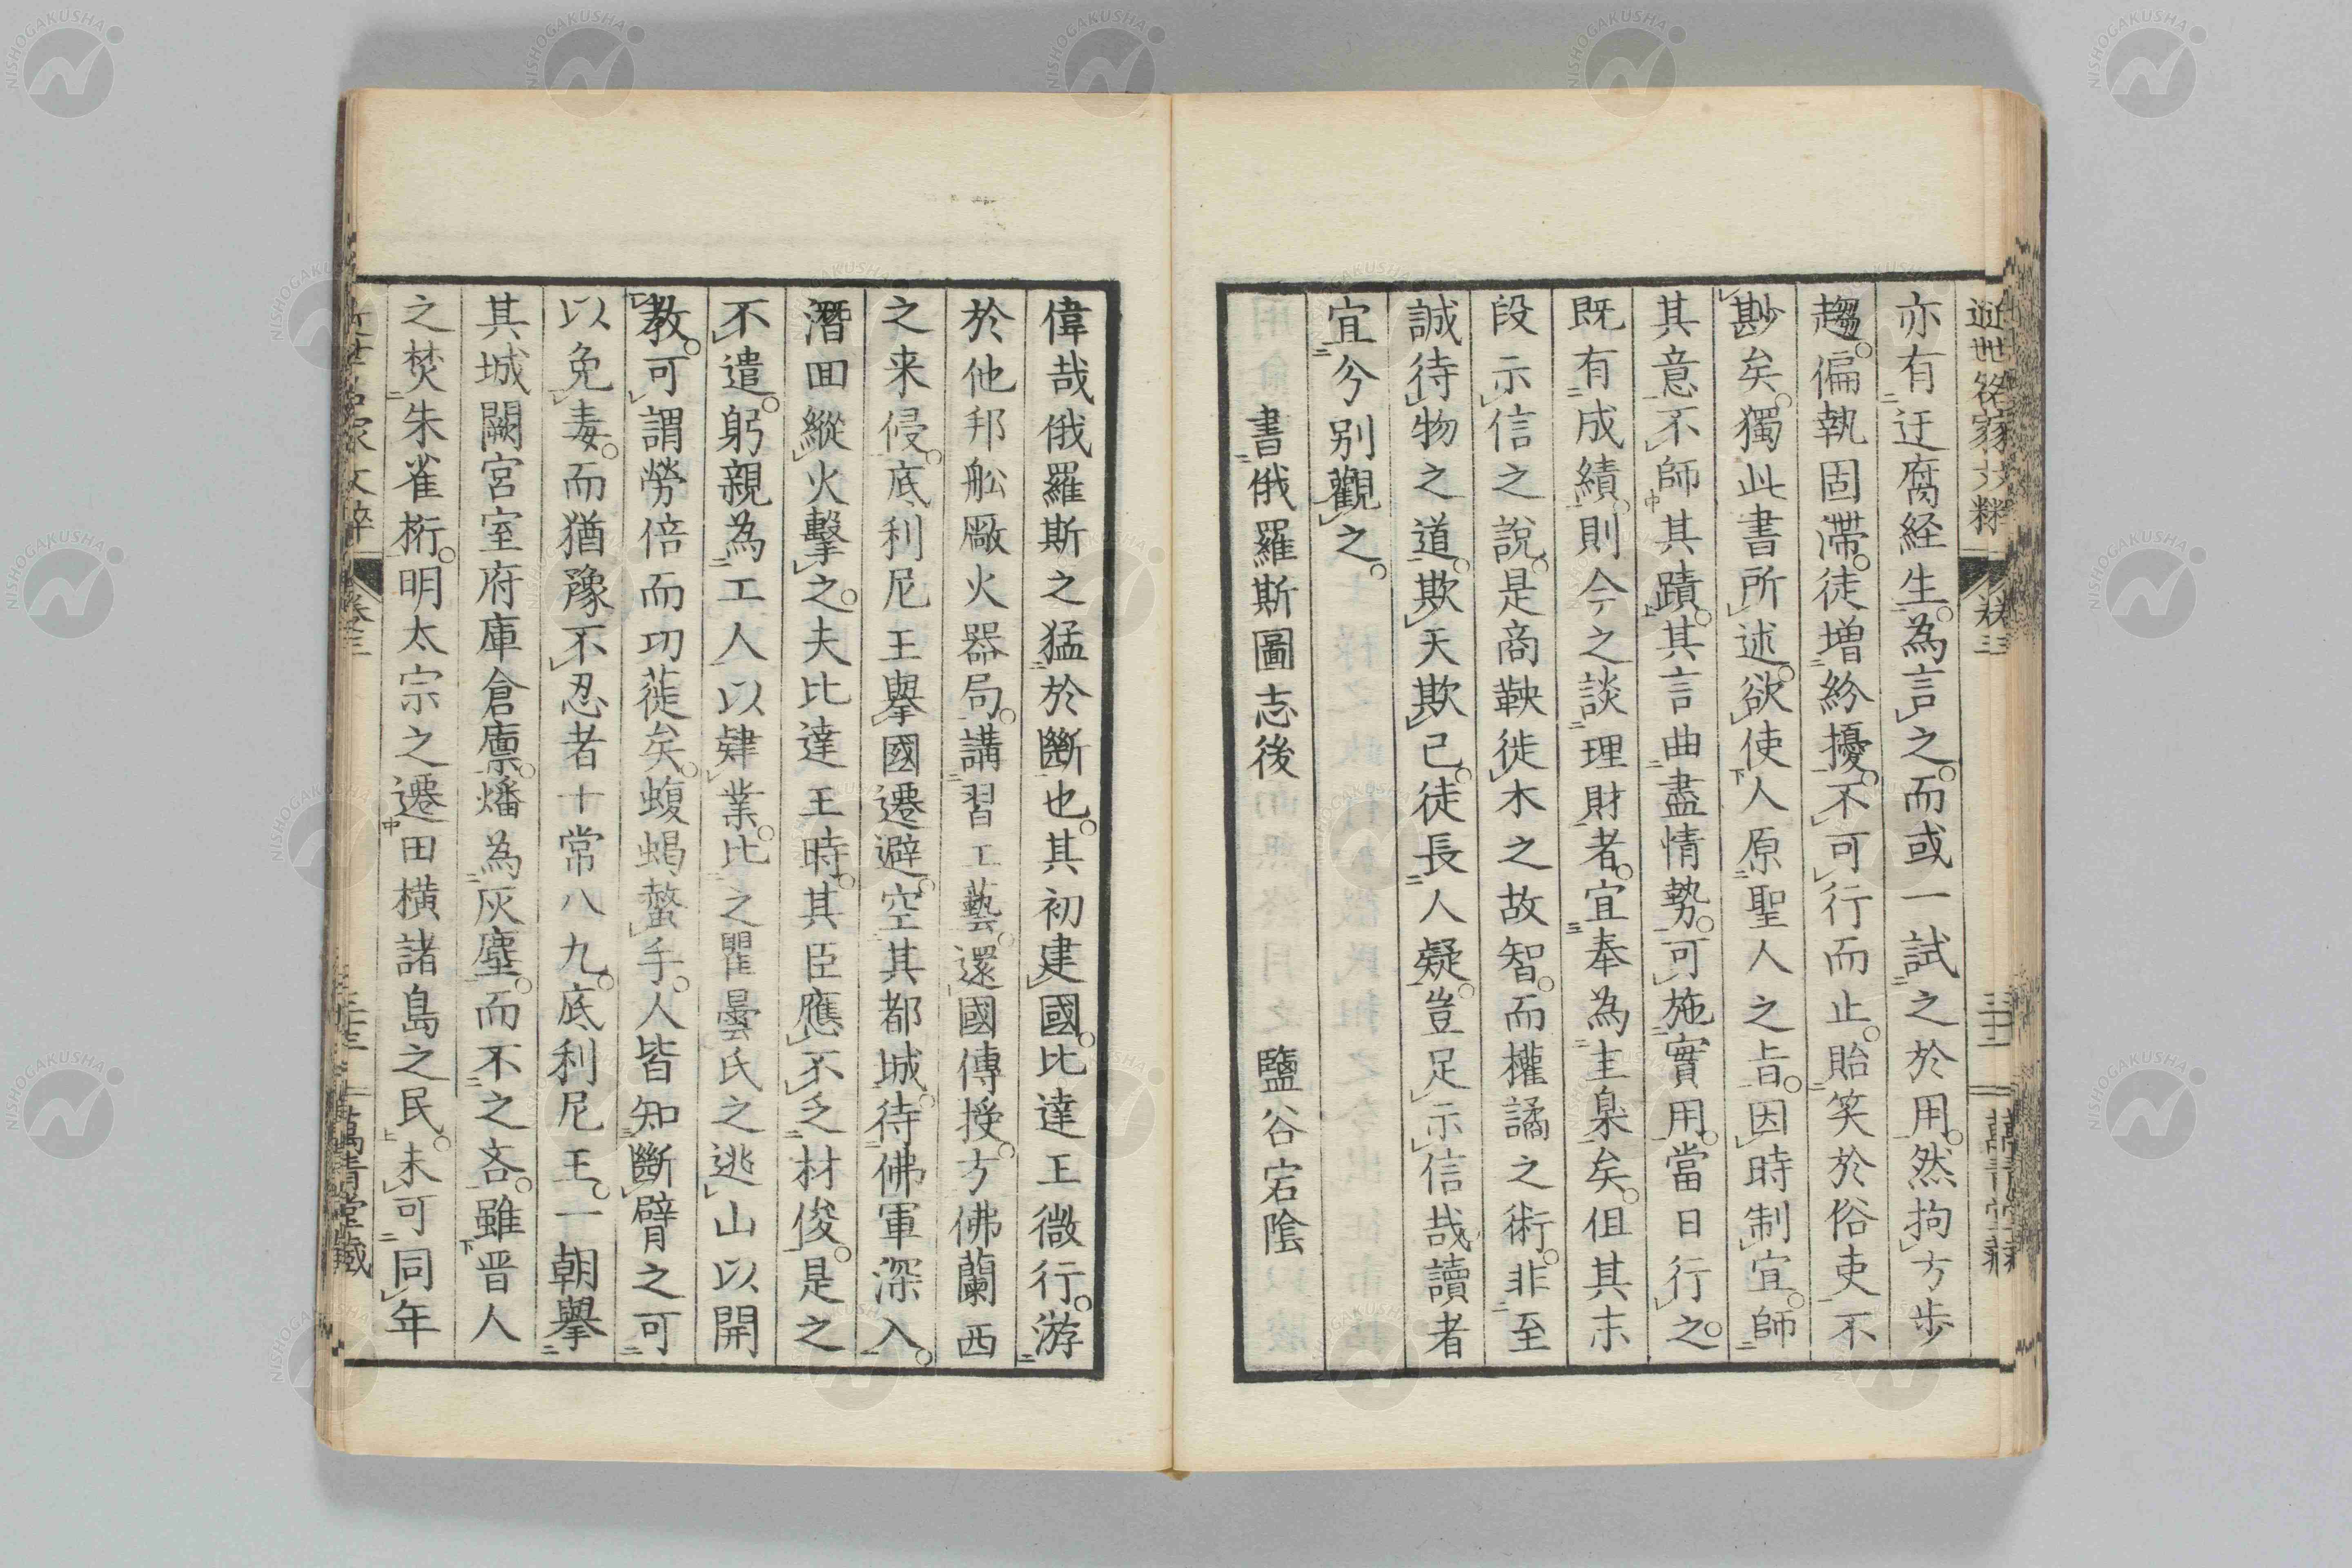 亦有迂腐経生。為言之。而或一試之於用。然拘方歩
趨。偏執固滯。徒増紛擾。不可行而止。貽笑於俗吏不
尠矣。獨此書所述。欲使人原聖人之旨。因時制宜。師
其意不師其蹟。其言曲盡情勢。可施實用。當日行之。
既有成績。則今之談理財者。宜奉為圭臬矣。但其末
段示信之說。是商鞅徙木之故智。而權譎之術。非至
誠待物之道。欺天欺己。徒長人疑。豈足示信哉讀者
宜分别觀之。
書俄羅斯圖志後 鹽谷宕陰
偉哉俄羅斯之猛於斷也。其初建國。比達王微行。游
於他邦舩廠火器局。講習工藝。還國傳授。方佛蘭西
之来侵。底利尼王擧國遷避。空其都城。待佛軍深入。
潛回縱火擊之。夫比達王時。其臣應不乏材俊。是之
不遣。躬親為工人以肄業。比之瞿曇氏之逃山以開
教。可謂勞倍而功蓰矣。蝮蝎螫手。人皆知斷臂之可
以免毒。而猶豫不忍者十常八九。底利尼王。一朝擧
其城闕宮室府庫倉廩。燔為灰塵。而不之吝。雖晋人
之焚朱雀桁。明太宗之遷田橫諸島之民。未可同年
近世名家文粹 卷三 三十二 萬青堂藏
卷三 萬青堂藏